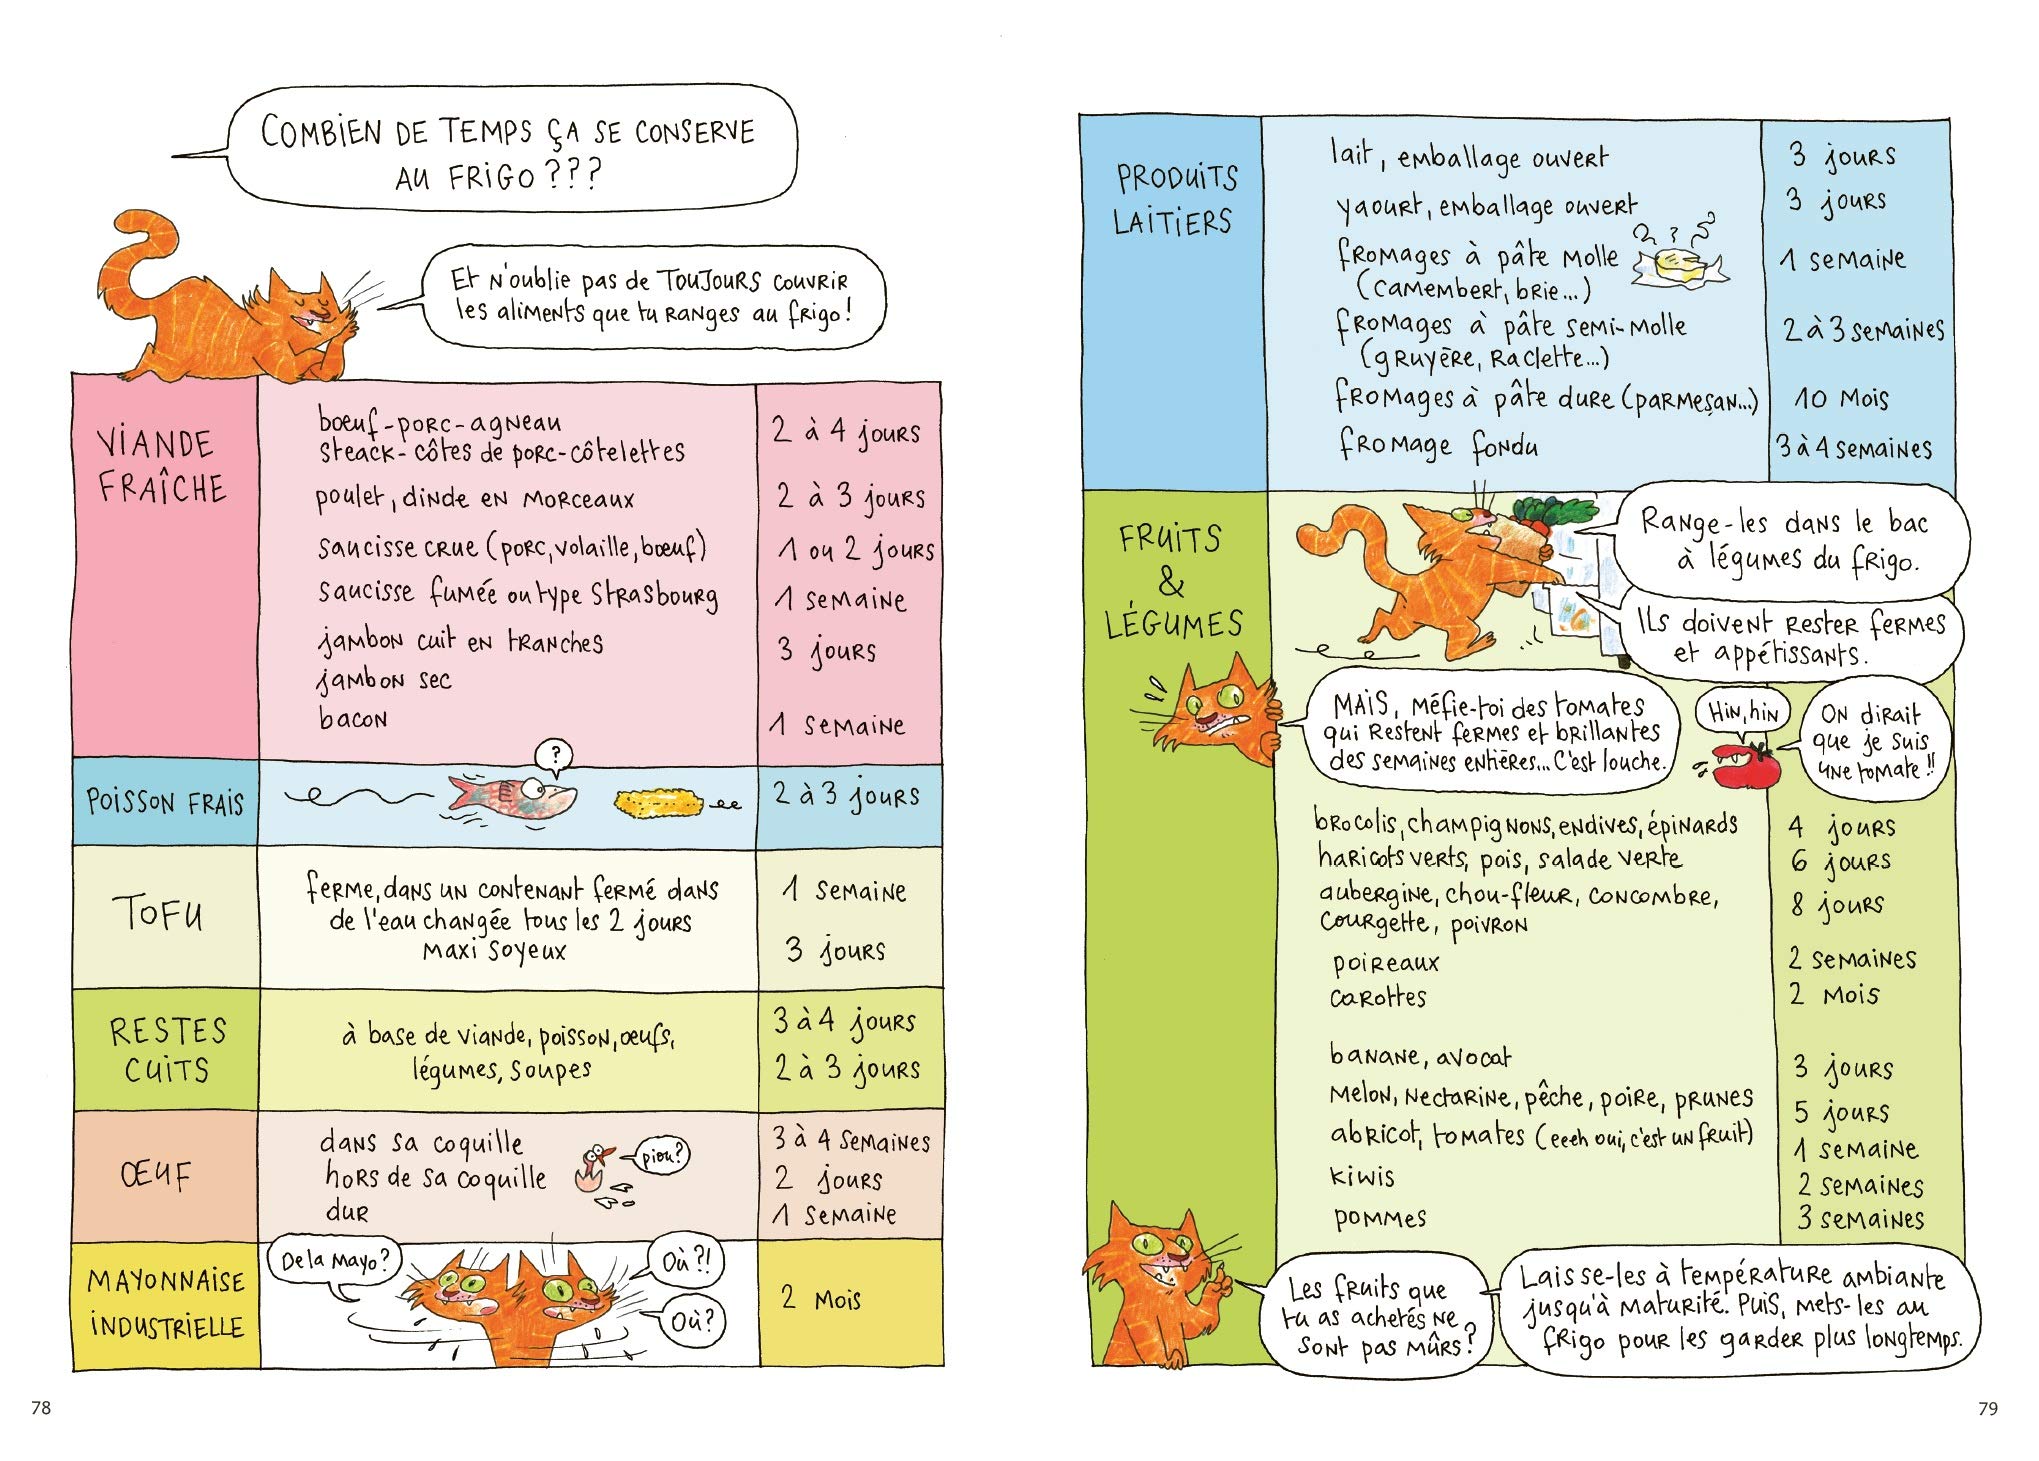 COMBIEN DE TEMPS ÇA SE CONSERVE
AU FRIGO ???
Et n'oublie pas de TOUJOURS couvrir
les aliments que tu ranges au frigo !
VIANDE
FRAÎCHE
bœuf-porc-agneau
steack-côtes de porc-côtelettes
2 à 4 jours
poulet, dinde en morceaux
2 à 3 jours
saucisse crue (porc, volaille, bœuf)
1 ou 2 jours
saucisse fumée ou type Strasbourg
1 semaine
jambon cuit en tranches
3 jours
jambon sec
bacon
1 semaine
POISSON FRAIS
?
2 à 3 jours
TOFU
ferme, dans un contenant fermé dans
de l'eau changée tous les 2 jours
maxi soyeux
1 semaine
3 jours
RESTES
CUITS
à base de viande, poisson, œufs,
légumes, soupes
3 à 4 jours
2 à 3 jours
ŒUF
dans sa coquille
3 à 4 semaines
hors de sa coquille
2 jours
dur
1 semaine
piou ?
MAYONNAISE
INDUSTRIELLE
De la mayo ?
Où ?!
Où ?
2 mois
78
PRODUITS
LAITIERS
lait, emballage ouvert
3 jours
yaourt, emballage ouvert
3 jours
?
fromages à pâte molle
(camembert, brie...)
1 semaine
fromages à pâte semi-molle
(gruyère, raclette...)
2 à 3 semaines
fromages à pâte dure (parmesan...)
10 mois
fromage fondu
3 à 4 semaines
FRUITS
&
LÉGUMES
Range-les dans le bac
à légumes du frigo.
Ils doivent rester fermes
et appétissants.
MAIS, méfie-toi des tomates
qui restent fermes et brillantes
des semaines entières... C'est louche.
Hin, hin
On dirait
que je suis
une tomate !!
brocolis, champignons, endives, épinards
4 jours
haricots verts, pois, salade verte
6 jours
aubergine, chou-fleur, concombre,
courgette, poivron
8 jours
poireaux
2 semaines
carottes
2 mois
banane, avocat
3 jours
melon, nectarine, pêche, poire, prunes
5 jours
abricot, tomates (eeeh oui, c'est un fruit)
1 semaine
kiwis
2 semaines
pommes
3 semaines
Les fruits que
tu as achetés ne
sont pas mûrs ?
Laisse-les à température ambiante
jusqu'à maturité. Puis, mets-les au
frigo pour les garder plus longtemps.
79